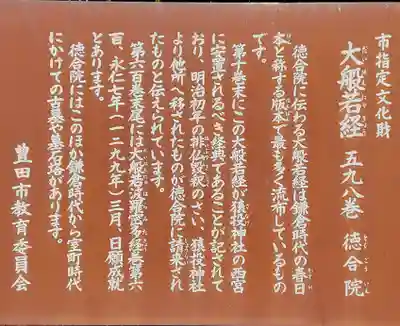 市指定文化財
大般若経 五九八巻 徳合院
徳合院に伝わる大般若経は鎌倉時代の春日
本と称する版本で最も多く流布しているもの
です。
第十巻末にこの大般若経が猿投神社の西宮
に安置されるべき経典であることが記されて
おり、明治初年の排仏毀釈のさい、猿投神社
より他所へ移されたものが徳合院に請来され
たものと伝えられています。
第六百巻末尾には大般若波羅蜜多経巻第六
百、永仁七年(一二九九年)三月、日願成就
とあります。
徳合院にはこのほか鎌倉時代から室町時代
にかけての古墓や墓石塔があります。
豊田市教育委員会